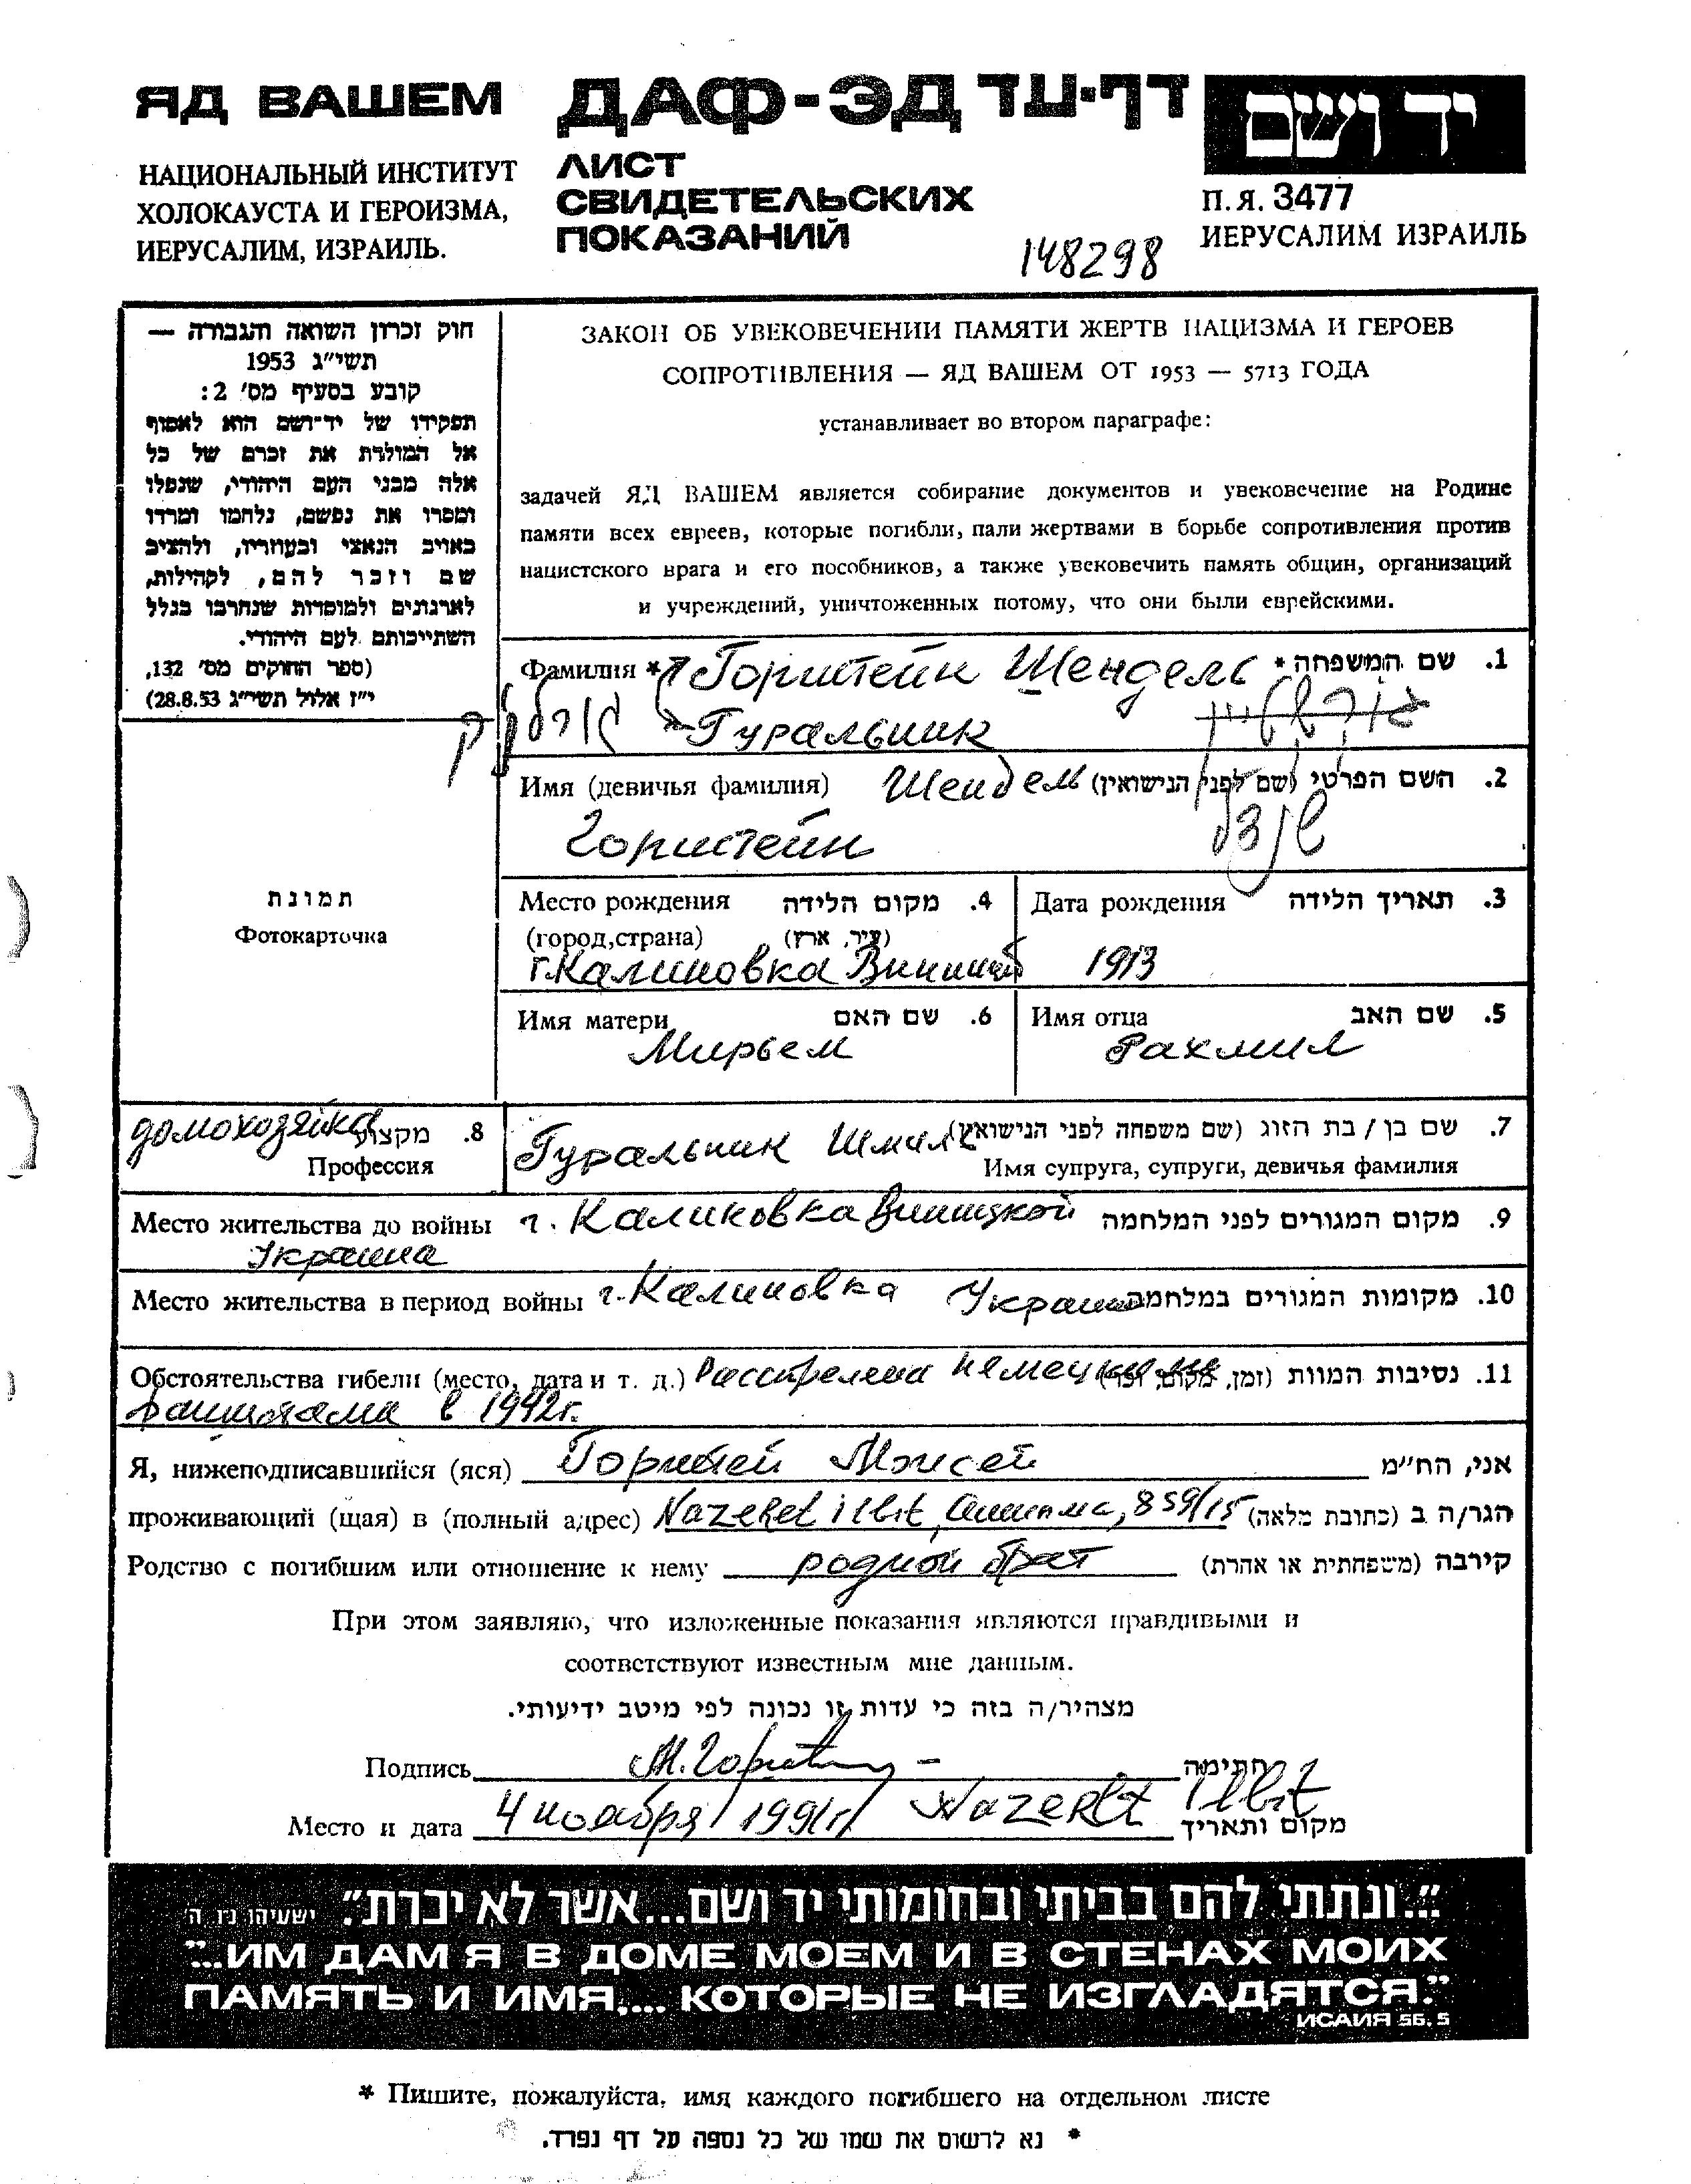 ЯД ВАШЕМ
НАЦИОНАЛЬНЫЙ ИНСТИТУТ
ХОЛОКАУСТА И ГЕРОИЗМА,
ИЕРУСАЛИМ, ИЗРАИЛЬ.
ДАФ-ЭД דף-עד
ЛИСТ
СВИДЕТЕЛЬСКИХ
ПОКАЗАНИЙ
148298
יד ושם
П.Я. 3477
ИЕРУСАЛИМ ИЗРАИЛЬ
חוק זכרון השואה והגבורה —
תשי״ג 1953
קובע בסעיף מס׳ 2:
תפקידו של יד־ושם הוא לאסוף
אל המולדת את זכרם של כל
אלה מבני העם היהודי, שנפלו
ומסרו את נפשם, נלחמו ומרדו
באויב הנאצי ובעוזריו, ולהציב
שם וזכר להם, לקהילות,
לארגונים ולמוסדות שנחרבו בגלל
השתייכותם לעם היהודי.
(ספר החוקים מס׳ 132,
י״ז אלול תשי״ג 28.8.53)
ЗАКОН ОБ УВЕКОВЕЧЕНИИ ПАМЯТИ ЖЕРТВ НАЦИЗМА И ГЕРОЕВ
СОПРОТИВЛЕНИЯ — ЯД ВАШЕМ ОТ 1953 — 5713 ГОДА
устанавливает во втором параграфе:
задачей ЯД ВАШЕМ является собирание документов и увековечение на Родине
памяти всех евреев, которые погибли, пали жертвами в борьбе сопротивления против
нацистского врага и его пособников, а также увековечить память общин, организаций
и учреждений, уничтоженных потому, что они были еврейскими.
Фамилия * Горштейн Шендель * שם המשפחה .1
Гуральник גורשטיין
גורלניק
Имя (девичья фамилия) Шендель השם הפרטי (שם לפני הנישואין) .2
Горштейн שנדל
תמונת
Фотокарточка
Место рождения מקום הלידה .4
(город,страна) (עיר, ארץ)
г.Калиновка
Дата рождения תאריך הלידה .3
1913
Имя матери שם האם .6
Мирьем
Имя отца שם האב .5
Рахмил
домохозяйка מקצוע .8
Профессия
Гуральник שם בן / בת הזוג (שם משפחה לפני הנישואין) .7
Имя супруга, супруги, девичья фамилия
Место жительства до войны г. Калиновка Виницкой מקום המגורים לפני המלחמה .9
Украина
Место жительства в период войны г. Калиновка Украина מקומות המגורים במלחמה .10
Обстоятельства гибели (место, дата и т. д.) Расстреляна немецкими נסיבות המוות (זמן, מקום, וכו׳) .11
фашистами в 1942г.
Я, нижеподписавшийся (яся) Горштейн Моисей אני, הח״מ
проживающий (щая) в (полный адрес) Nazeret illit, 859/15 הגר/ה ב (כתובת מלאה)
Родство с погибшим или отношение к нему родной брат קירבה (משפחתית או אחרת)
При этом заявляю, что изложенные показания являются правдивыми и
соответствуют известным мне данным.
מצהיר/ה בזה כי עדות זו נכונה לפי מיטב ידיעותי.
Подпись חתימה
Место и дата 4 ноября 1991г. Nazeret Illit מקום ותאריך
״...ונתתי להם בביתי ובחומותי יד ושם...אשר לא יכרת״. ישעיהו נו, ה
"...ИМ ДАМ Я В ДОМЕ МОЕМ И В СТЕНАХ МОИХ
ПАМЯТЬ И ИМЯ,... КОТОРЫЕ НЕ ИЗГЛАДЯТСЯ."
ИСАИЯ 56, 5
* Пишите, пожалуйста, имя каждого погибшего на отдельном листе
* נא לרשום את שמו של כל נספה על דף נפרד.